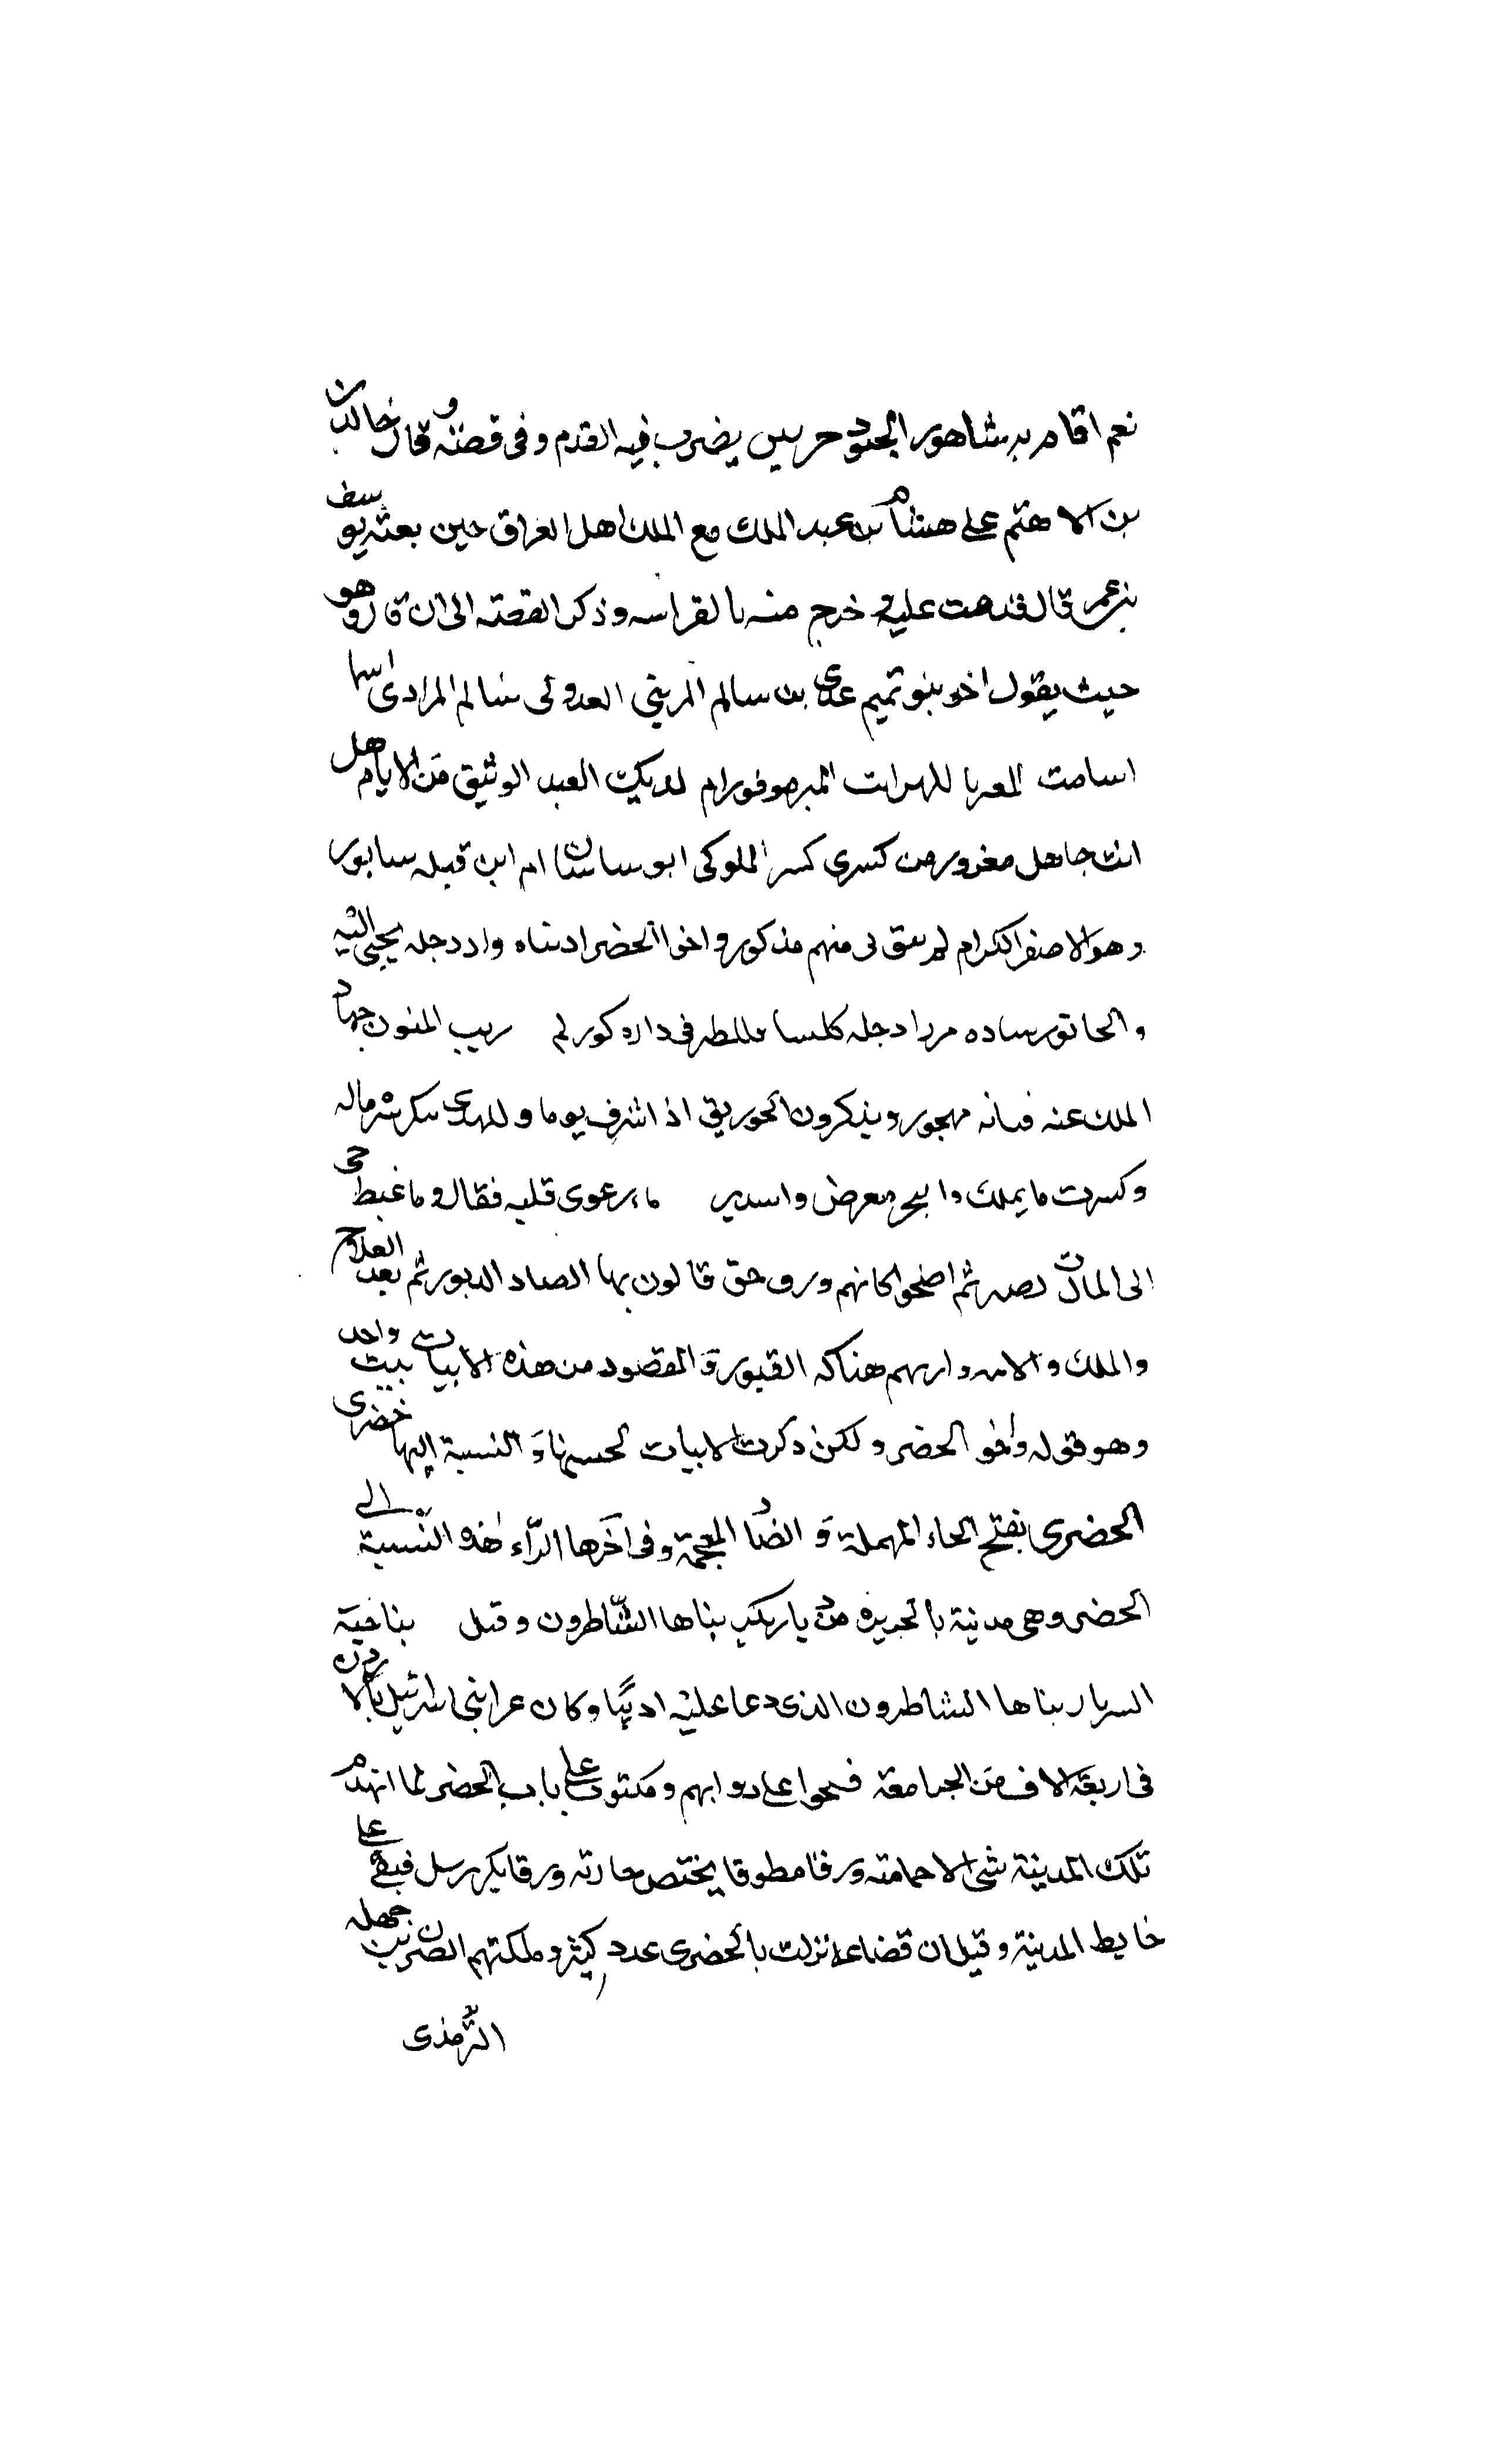 نعم اقام به شاهور الجنود حولين يضرب فيه القدم وفى قصته وقال خالد بن
بن الاهتم على هشام بن عبد الملك مع الملك اهل العراق حين بعثه يوسف
بن عمر قال قدمت عليه خرج منه بالقراسه وذكر القصته الى ان قا وهو
حيث يقول اخو بنو تميم عدى بن سالم المرينى العدوى سالم المرادى
اسامت المعربا للهرات المبرموفورام لديك العبد الوثيق من الايام هل
انت جاهل مغرور من كسرى كسر الملوكى ابو ساسان ام اين قبله سابور
وهوالاصفر الكرام لم سق لى منهم مذكور واخوا الحضر ادبناه واد دجله يجبى اليه
والحاتور ساده مردا دجله كلسا فللطر فى داره كور لم ريب المنون جهاد
الملك عنه فبانه مهجور ويذكرون الحوريق اذ اشرف يوما وللهدى سكر شرماله
وكسرت ما يملك والبحر معرض واسدير ما يرعوى قلبه فقال وما غبط حى
الى المات لصر ثم اضحوا كانهم ورق حق قالون بها الصاد الدبور ثم بعد الفلاح
والملك والامه وارهم هناكه القبور و المقصود من هذه الابيات بيت واحد
وهو قوله واخو الحضر ولكن ذكرت الابيات لحسنها و النسبة اليها خضرى
الحضرى بفتح الحاء المهملة و الضاد المعجمة وفى آخرها الراء هذه النسبة الى
الحضر وهى مدينة بالجزيره من ديار بكر بناها الشاطرون وقبل بناحية
السربار بناها الشاطرون الذى دعا عليه ادبيا وكان عرا بنى اسرائيل بالاردن
فى اربعة الاف من الجرامعة فسحوا على دوابهم ومكتوب على باب الحضر لما انهدم
تلك المدينة شى الا حمامته ورقا مطوقا يختص حارته ورقا بكر رسل فبقى على
خايط المدينة وقيل ان قضاعة نزلت بالحضرى عدد كثير وملكتهم الضيزن بن جهله
الترمذى